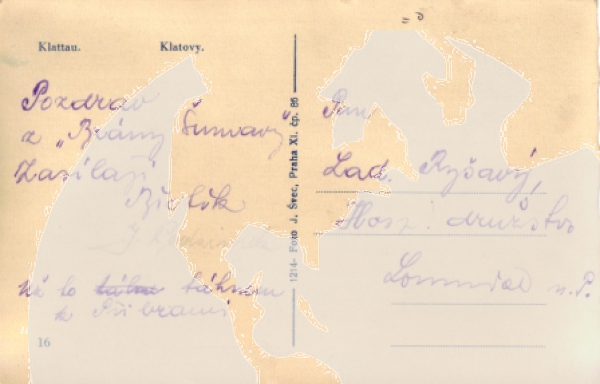 Klattau. Klatovy.
Pozdrav
z „Brány Šumavy"
Zasílají
už to táhnem
k Příbrami
16
1214- Foto J. Švec, Praha XI. čp. 86
Pan
Lad. Ryšavý,
Hosp. družstvo
Lomnice n. P.